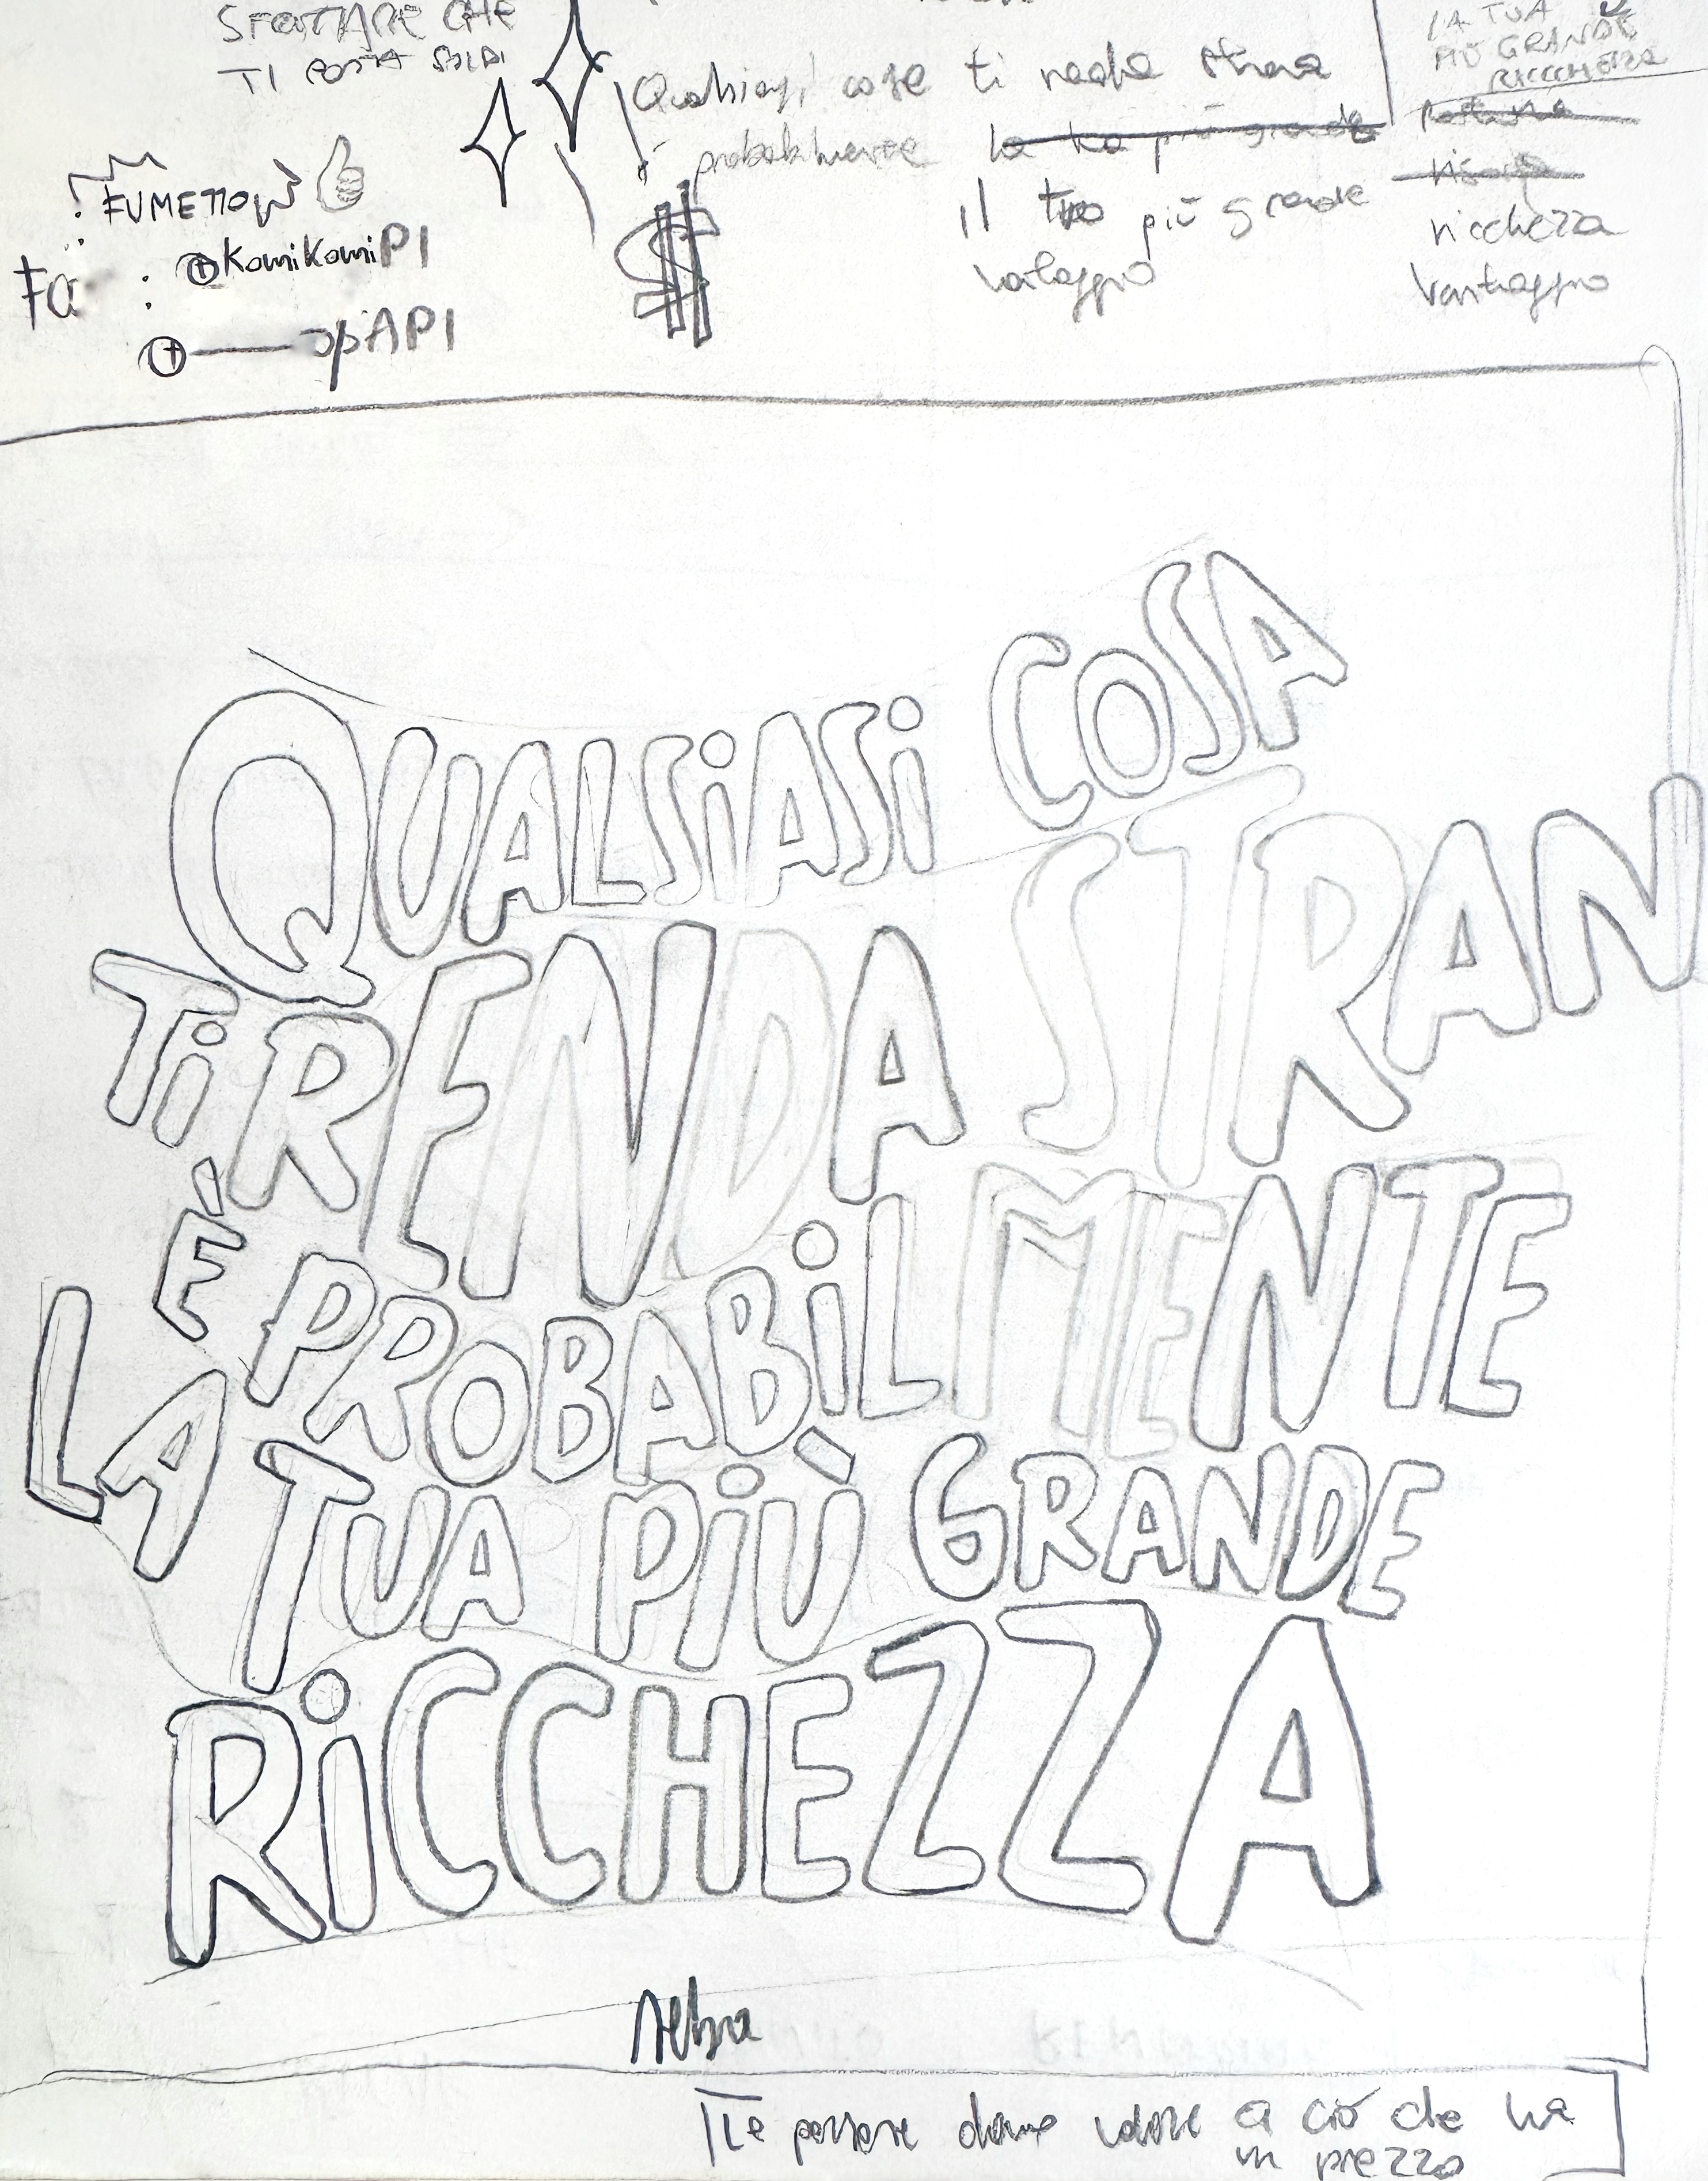 CHE
TI PORTA SOLDI
Qualsiasi cosa ti renda strana
probabilmente la tua più grande
il tuo più grande
vantaggio
LA TUA
PIÙ GRANDE
RICCCHEZZA
risorsa
ricchezza
Vantaggio
FUMETTOW
@KomiKomiPI
API
$
QUALSIASI COSA
TI RENDA STRAN
È PROBABILMENTE
LA TUA PIÙ GRANDE
RICCHEZZA
Le persone danno valore a ciò che ha
un prezzo